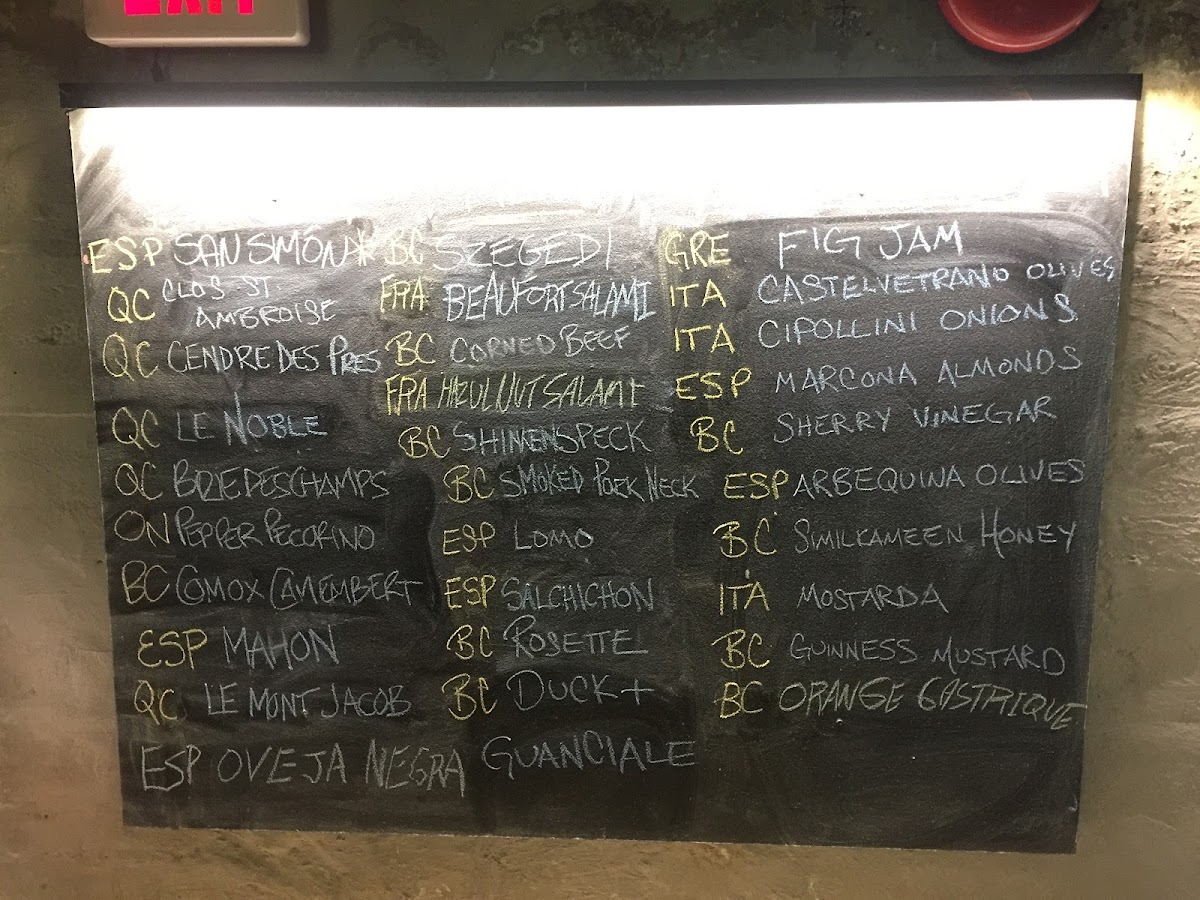 EXIT
ESP SAN SIMÓN*
QC CLOS ST
AMBROISE
QC CENDRE DES PRES
QC LE NOBLE
QC BRIE DESCHAMPS
ON PEPPER PECORINO
BC COMOX CAMEMBERT
ESP MAHON
QC LE MONT JACOB
ESP OVEJA NEGRA
BC SZEGEDI
FRA BEAUFORT SALAMI
BC CORNED BEEF
FRA HAZULNUT SALAMI
BC SHINKENSPECK
BC SMOKED PORK NECK
ESP LOMO
ESP SALCHICHON
BC ROSETTE
BC DUCK +
GUANCIALE
GRE FIG JAM
ITA CASTELVETRANO OLIVES
ITA CIPOLLINI ONIONS
ESP MARCONA ALMONDS
BC SHERRY VINEGAR
ESP ARBEQUINA OLIVES
BC SIMILKAMEEN HONEY
ITA MOSTARDA
BC GUINNESS MUSTARD
BC ORANGE GASTRIQUE